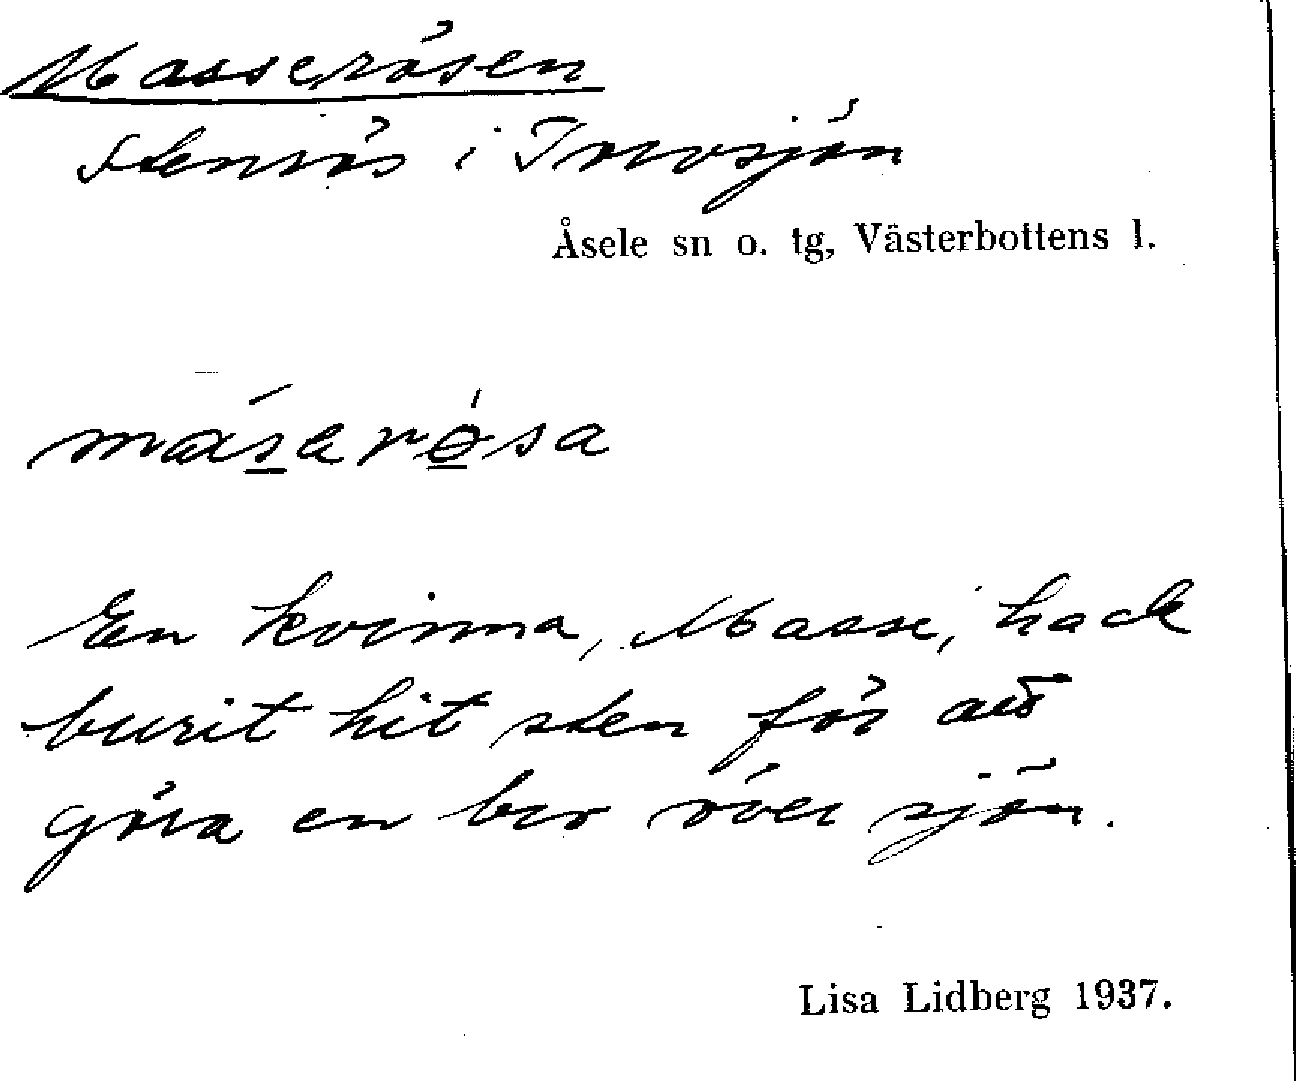 Masserösen
Stenrös i Torvsjön
Åsele sn o. tg, Västerbottens l.
másarø̱sa
En kvinna, "Masse", hade
burit hit sten för att
göra en bro över sjön.
Lisa Lidberg 1937.